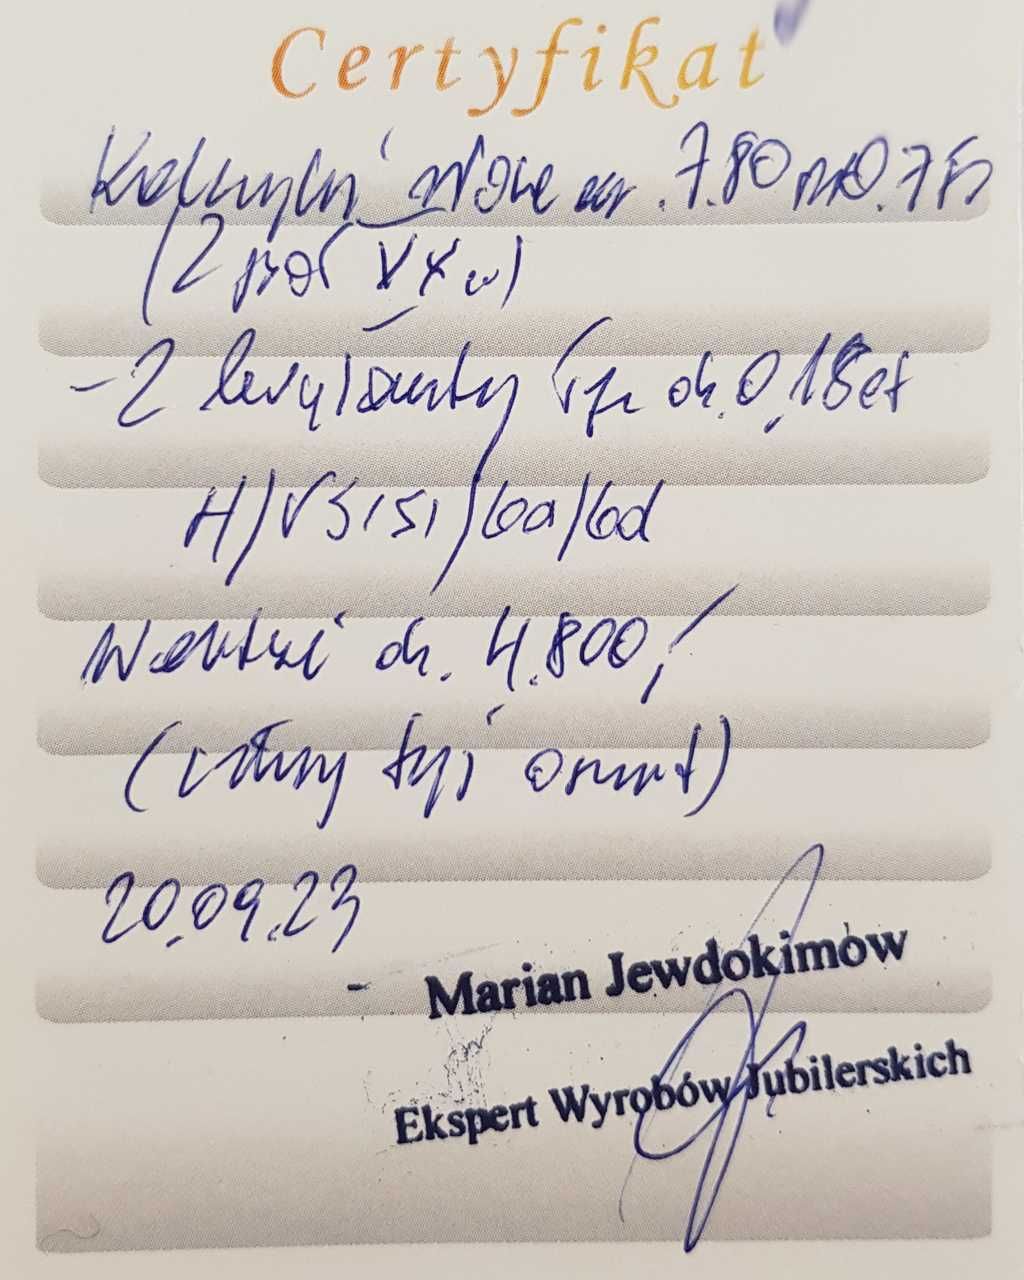 Certyfikat
Kolczyki złote 7.80 0.750
(2 poł XX w)
- 2 brylanty ok. 0,18ct
H/VSISI/
Wartość ok. 4.800,-
(
20.09.23
Marian Jewdokimów
Ekspert Wyrobów Jubilerskich